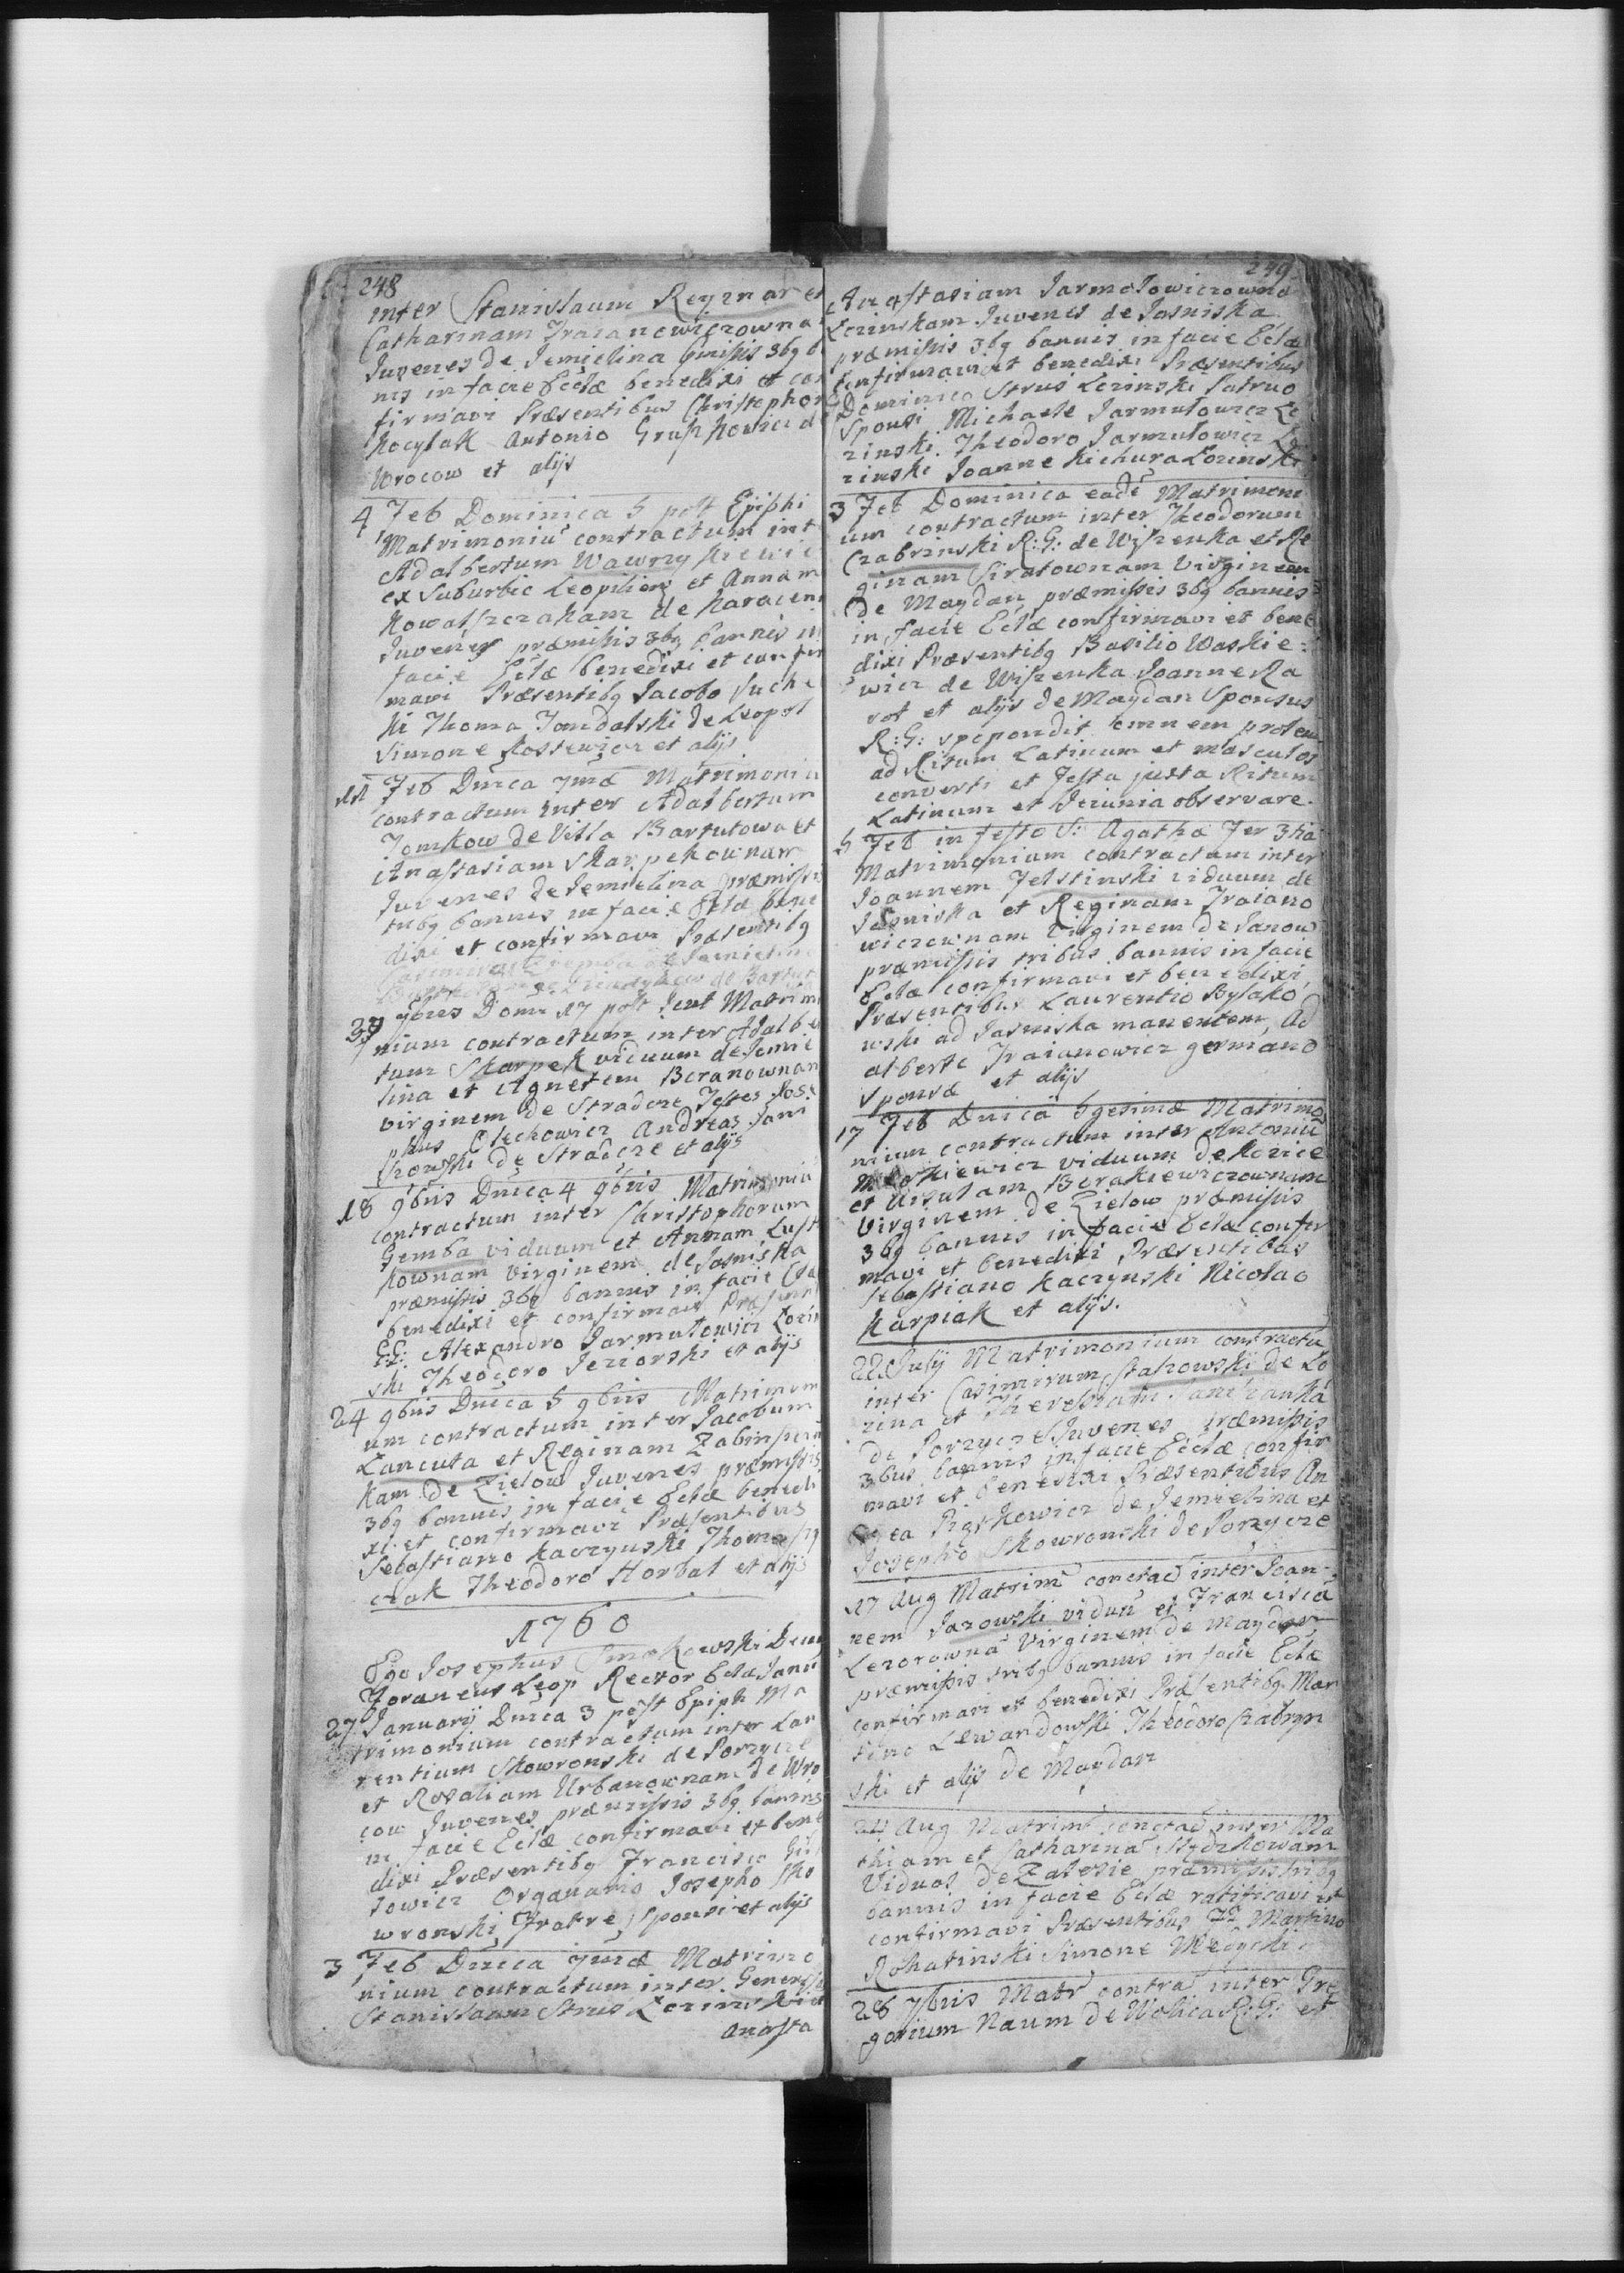 248
inter Stanislaum Reyznar et
Catharinam Fraianowiczowna
Juvenes de Jemielina pmissis 3bq b
nis in facie Eccłæ benedixi et con
firmavi Præsentibus Christophor
Kocylak Antonio Gruszkowicz de
Wrocow et alijs
4 Feb Dominica 5 post Epiphi
Matrimoniũ contractum int
Adalbertum Wawrzyskiewic
ex Suburbio Leopilion et Annam
Kowalszczakam de Karaceni
Juvenes præmissis 3bq bannis in
facie Eclæ benedixi et confir
mavi Præsentibq Jacobo Suche
ki Thoma Tomdalski de Leopol
Simone Kostewicz et alijs
11 Feb Dnica 7mæ Matrimoniu
contractum inter Adalbertum
Tomkow de Villa Bartutowa et
Anastasiam Skarpekownam
Juvenes de Jemielina præmissi
tribq bannis in facie Eclæ bene
dixi et confirmavi Præsentibq
de Jemielin
de Bartut
30 7bres Dom 17 post Pent Matrim
nium contractum inter Adalbe
tum Skarpek viduum de Jemie
lina et Agnetem Beranownam
virginem de Stradcze Testes Jose
phus Olechowicz Andreas Jani
szowski de Stradcze et alijs
18 9bris Dnica 4 9bris Matrimoniũ
contractum inter Christophorum
Gemba viduum et Annam Lust
kownam Virginem de Jasniska
præmissis 3bq bannis in facie Ecla
benedixi et confirmavi Præsent
GG: Alexandro Jarmułowicz Lozin
ski Theodoro Jeziorski et alijs
24 9bris Dnica 5 9bris Matrimon
um contractum inter Jacobum
Lancuta et Reginam Zabinscen
kam de Zielow Juvenes præmissis
3bq bannis in facie Eclæ benedi
xi et confirmavi Præsentibus
Sebastiano Kaczynski Thoma
czak Theodoro Horbal et alijs
1760
Ego Josephus Smokowski Decan
Foraneus Leop Rector Eclæ Janu
27 Januarij Dnica 3 post Epiph Ma
trimonium contractum inter Lau
rentium Skowronski de Porzycze
et Rosaliam Urbanownam de Wro
cow Juvenes præmissis 3bq bannis
in facie Eclæ confirmavi et bene
dixi Præsentibq Francisco Gis
towicz Organario Josepho Sko
wronski Fratre Sponsi et alijs
3 Feb Dnica 7mæ Matrimo
nium contractum inter Generosu
Stanislaum Strus Lozinski et
Anasta
249
Anastasiam Jarmolowiczowna
Lozinskam Juvenes de Jasniska
præmissis 3bq bannis in facie Eclæ
Confirmavi et benedixi Præsentibus
Dominico Strus Lozinski Patruo
Sponsi Michaele Jarmułowicz Lo
zinski Theodoro Jarmułowicz Lo
zinski Joanne Kichura Lozinski
3 Feb Dominica eadẽ Matrimoni
um contractum inter Theodorum
Czabrinski R:G: de Wiszenka et Re
ginam Siratownam Virginem
de Maydan præmissis 3bq bannis
in facie Eclæ confirmavi et bene
dixi Præsentibq Basilio Waskie=
wicz de Wiszenka Joanne Ra
rot et alijs de Maydan Sponsus
R:G: spopondit omnem prolem
ad Ritum Latinum et masculos
converti et Festa juxta Ritum
Latinum et Jeiunia observare.
5 Feb in festo S: Agathæ Fer 3tia
Matrimonium contractum inter
Joannem Felstinski viduum de
Jasniska et Reginam Fraiano
wiczownam Virginem de Janow
præmissis tribus bannis in facie
Eclæ confirmavi et benedixi,
Præsentibus Laurentio Bylako
wski ad Jasniska manentem, Ad
alberto Fraianowicz germano
Sponsæ et alijs
17 Feb Dnica 6gesimæ Matrimo
nium contractum inter Antoniũ
Moskiewicz viduum de Kozice
et Ursulam Berakiewiczownam
Virginem de Zielow præmissis
3bq bannis in facie Eclæ confir
mavi et benedixi Præsentibus
Sebastiano Kaczynski Nicolao
Karpiak et alijs.
22 Julij Matrimonium contractũ
inter Casimirum Stahowski de Lo
zina et Theressiam
de Porzycze Juvenes præmissis
3bus bannis in facie Ecclæ confir
mavi et benedixi Præsentibus An
drea Piątkowicz de Jemielina et
Josepho Skowronski de Porzycze
17 Aug Matrimũ conctac inter Joan-
nem Jarowski viduũ et Franciscã
Lezorownã Virginem de Maydan
præmissis tribq bannis in facie Eclæ
confirmavi et benedixi Præsentibq Mar
tino Lewandowski Theodoro Czabryn
ski et alijs de Maydan
24 Aug Matrimũ conctac inter Ma
thiam et Catharinã
Viduos de Zalesie præmissis tribq
bannis in facie Eclæ ratificavi et
confirmavi Præsentibus Martino
Rohatinski Simone Medycki
28 7bris Matr contra inter Gre
gorium Naum de Wolica R:G: et